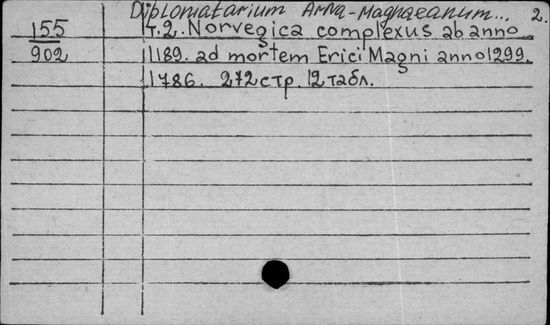 Diplomatarium Arna-Magnaeanum... 2.
155 т.2. Norvegica complexus ab anno
902 1189. ad mortem Erici Magni anno 1299.
1786. 272 стр. 12 табл.